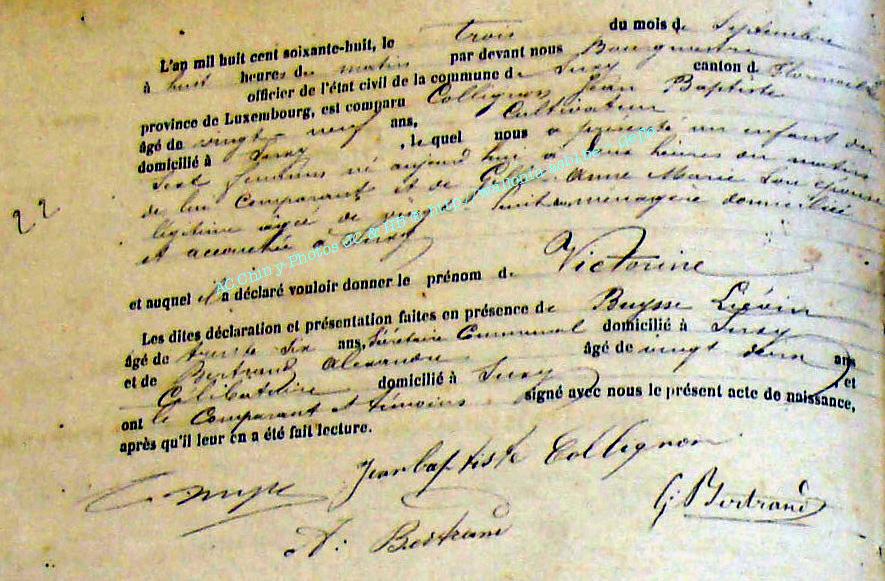 L'an mil huit cent soixante-huit, le trois du mois de Septembre
à huit heures du matin par devant nous Bourgmestre
officier de l'état civil de la commune de Suxy canton de Florenville
province de Luxembourg, est comparu Collignon Jean Baptiste
âgé de vingt-neuf ans, Cultivateur
domicilié à Suxy, lequel nous a présenté un enfant du
sexe féminin né aujourd'hui à deux heures du matin
de lui comparant et de Anne Marie son épouse
légitime âgée de vingt huit ans ménagère domiciliée
et accouchée à Suxy
22
et auquel il a déclaré vouloir donner le prénom de Victorine
Les dites déclaration et présentation faites en présence de Buysse Liévin
âgé de trente six ans, Sécrétaire Communal domicilié à Suxy
et de Bertrand Alexandre âgé de vingt deux ans
Célibataire domicilié à Suxy, et
ont le Comparant et témoins signé avec nous le présent acte de naissance,
après qu'il leur en a été fait lecture.
Jean baptiste Collignon
G. Bertrand
A: Bertrand